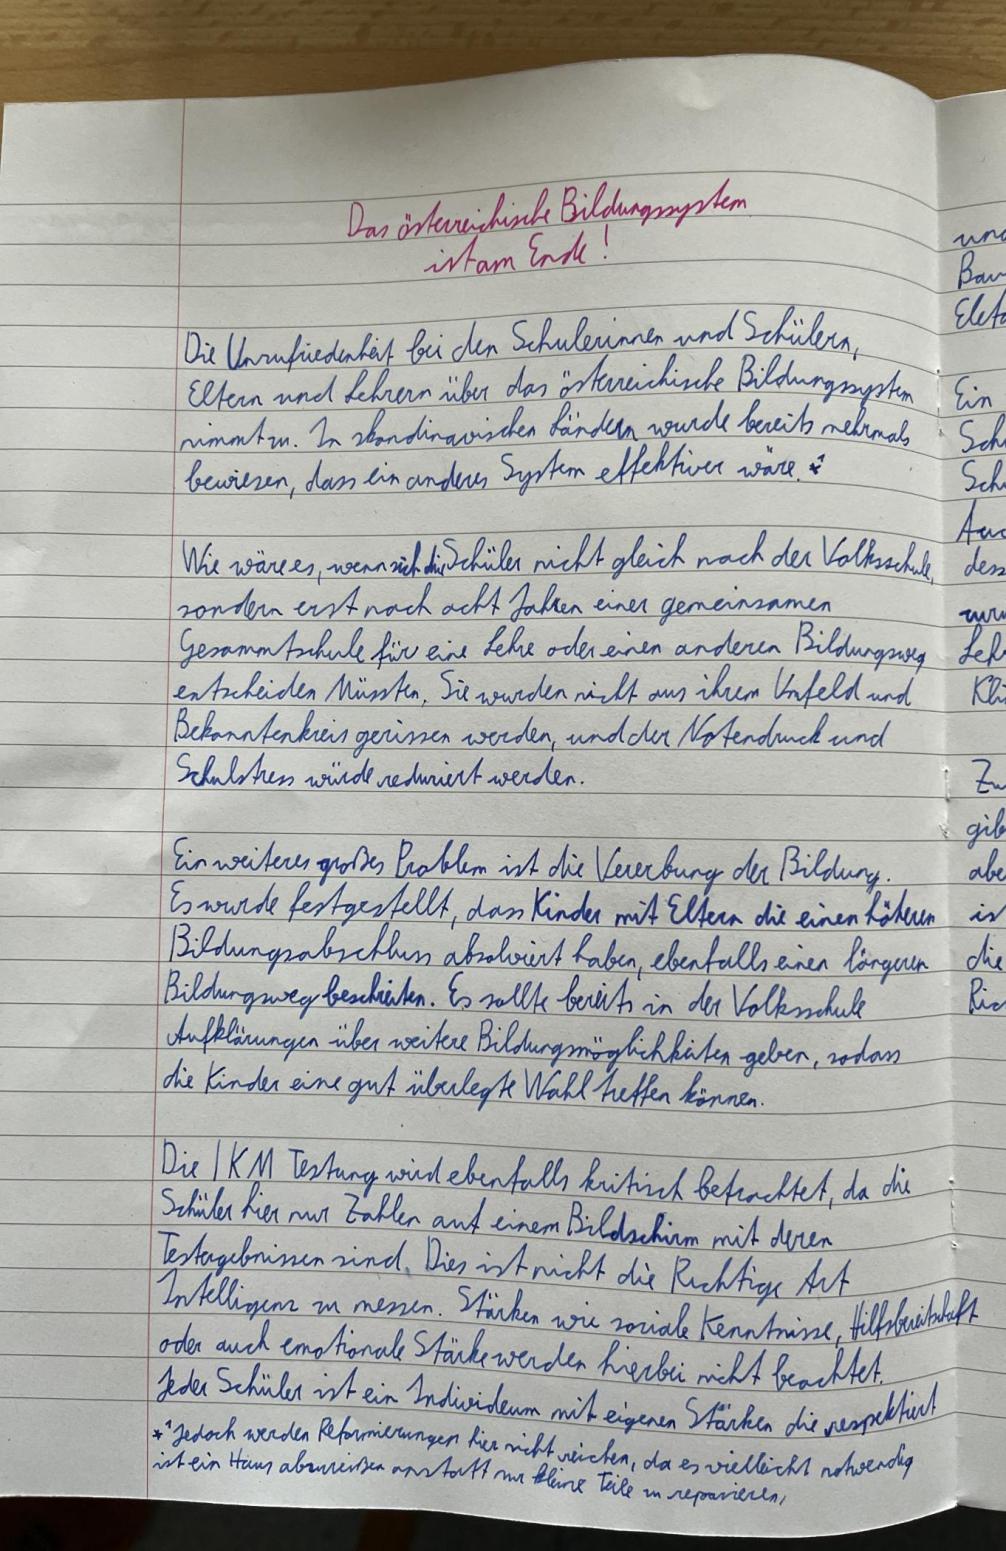 Das österreichische Bildungssystem
ist am Ende!
Die Unzufriedenheit bei den Schulerinnen und Schülern,
Eltern und Lehrern über das österreichische Bildungssystem
nimmt zu. In skandinavischen Ländern wurde bereits mehrmals
bewiesen, dass ein anderes System effektiver wäre.*
Wie wäre es, wenn sich die Schüler nicht gleich nach der Volksschule,
sondern erst nach acht Jahren einer gemeinsamen
Gesammtschule für eine Lehre oder einen anderen Bildungsweg
entscheiden Müssten. Sie wurden nicht aus ihrem Umfeld und
Bekanntenkreis gerissen werden, und der Notendruck und
Schulstress würde reduziert werden.
Ein weiteres großes Problem ist die Vererbung der Bildung.
Es wurde festgestellt, dass Kinder mit Eltern die einen höheren
Bildungsabschluss absolviert haben, ebenfalls einen längeren
Bildungsweg beschreiten. Es sollte bereits in der Volksschule
Aufklärungen über weitere Bildungsmöglichkeiten geben, sodass
die Kinder eine gut überlegte Wahl treffen können.
Die IKM Testung wird ebenfalls kritisch betrachtet, da die
Schüler hier nur Zahlen auf einem Bildschirm mit deren
Testergebnissen sind. Dies ist nicht die Richtige Art
Intelligenz zu messen. Stärken wie soziale Kenntnisse, Hilfsbereitschaft
oder auch emotionale Stärke werden hierbei nicht beachtet.
Jeder Schüler ist ein Individeum mit eigenen Stärken die respektiert
* Jedoch werden Reformierungen hier nicht reichen, da es vielleicht notwendig
ist ein Haus abzureißen anstatt nur kleine Teile zu reparieren,
und
Ein
Sch
Sch
dess
Leh
Zw
gib
abe
is
die